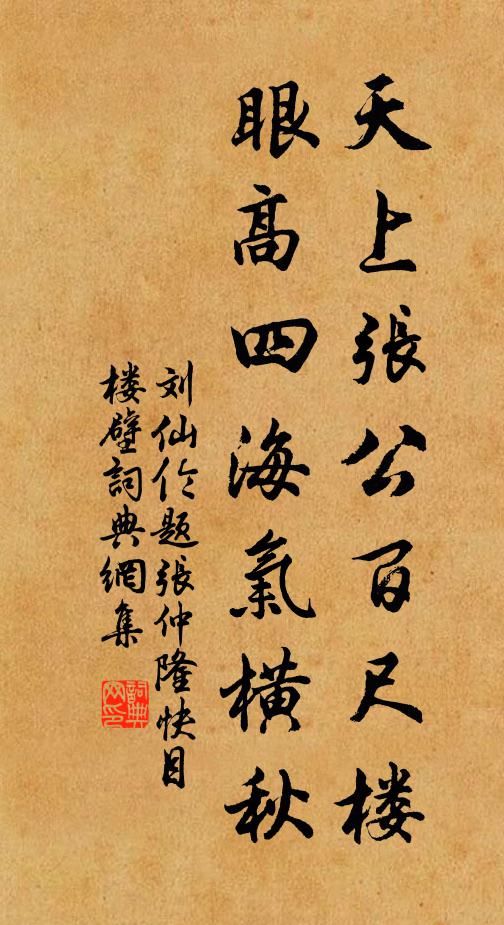 天上張公百尺楼
眼高四海氣橫秋
刘仙伦题張仲隆快目
楼壁詞典網集
詞典网印